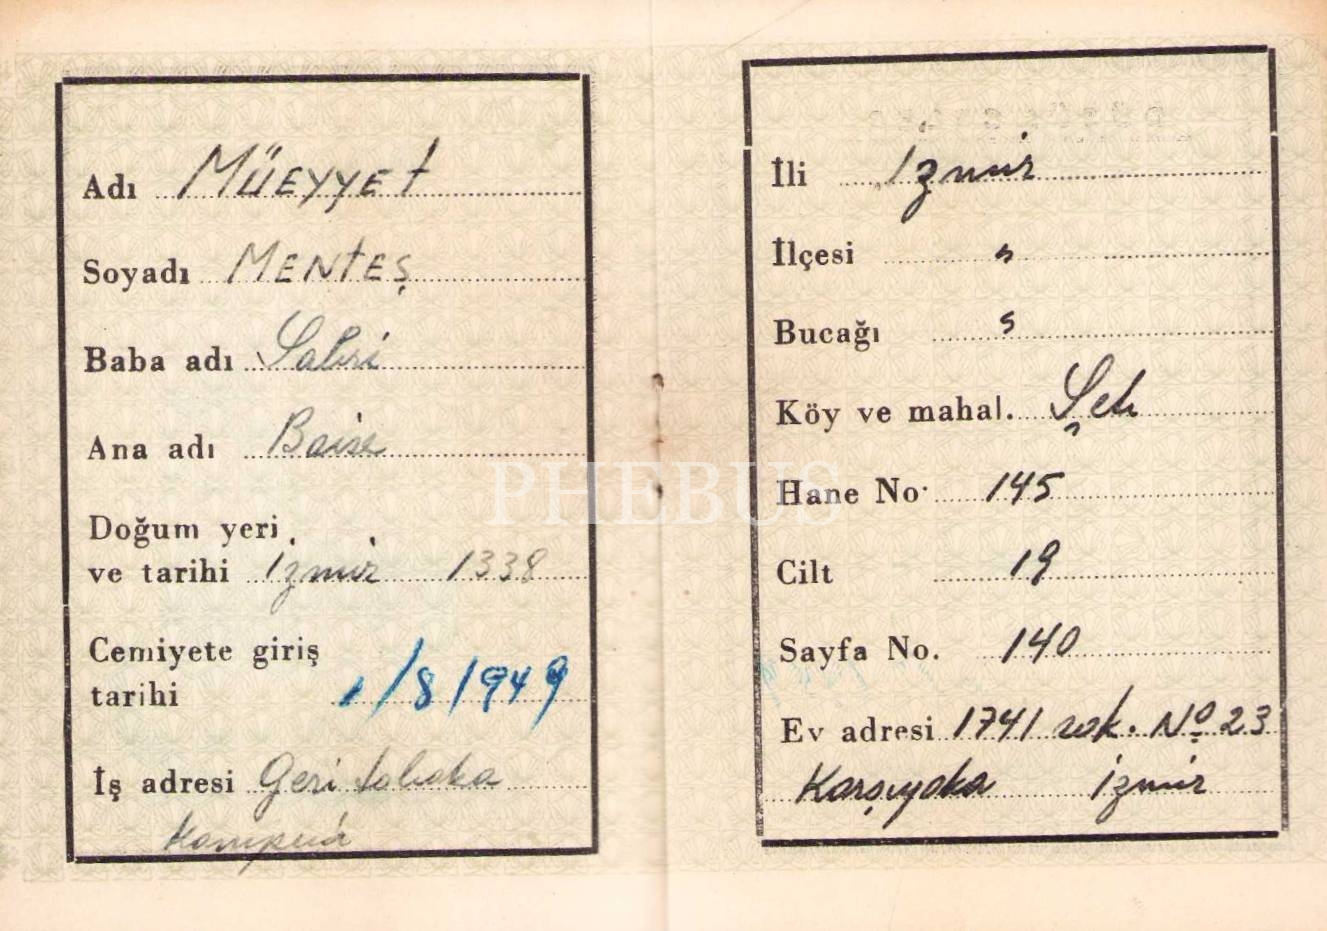 Adı MÜEYYEt
Soyadı MENtEŞ
Baba adı Sabri
Ana adı
Doğum yeri
ve tarihi İzmir 1338
Cemiyete giriş
tarihi 1/8/1949
İş adresi Geri tobaka
İli İzmir
İlçesi "
Bucağı "
Köy ve mahal.
Hane No. 145
Cilt 19
Sayfa No. 140
Ev adresi 1741 sok. No 23
Karşıyaka İzmir
PHEBUS